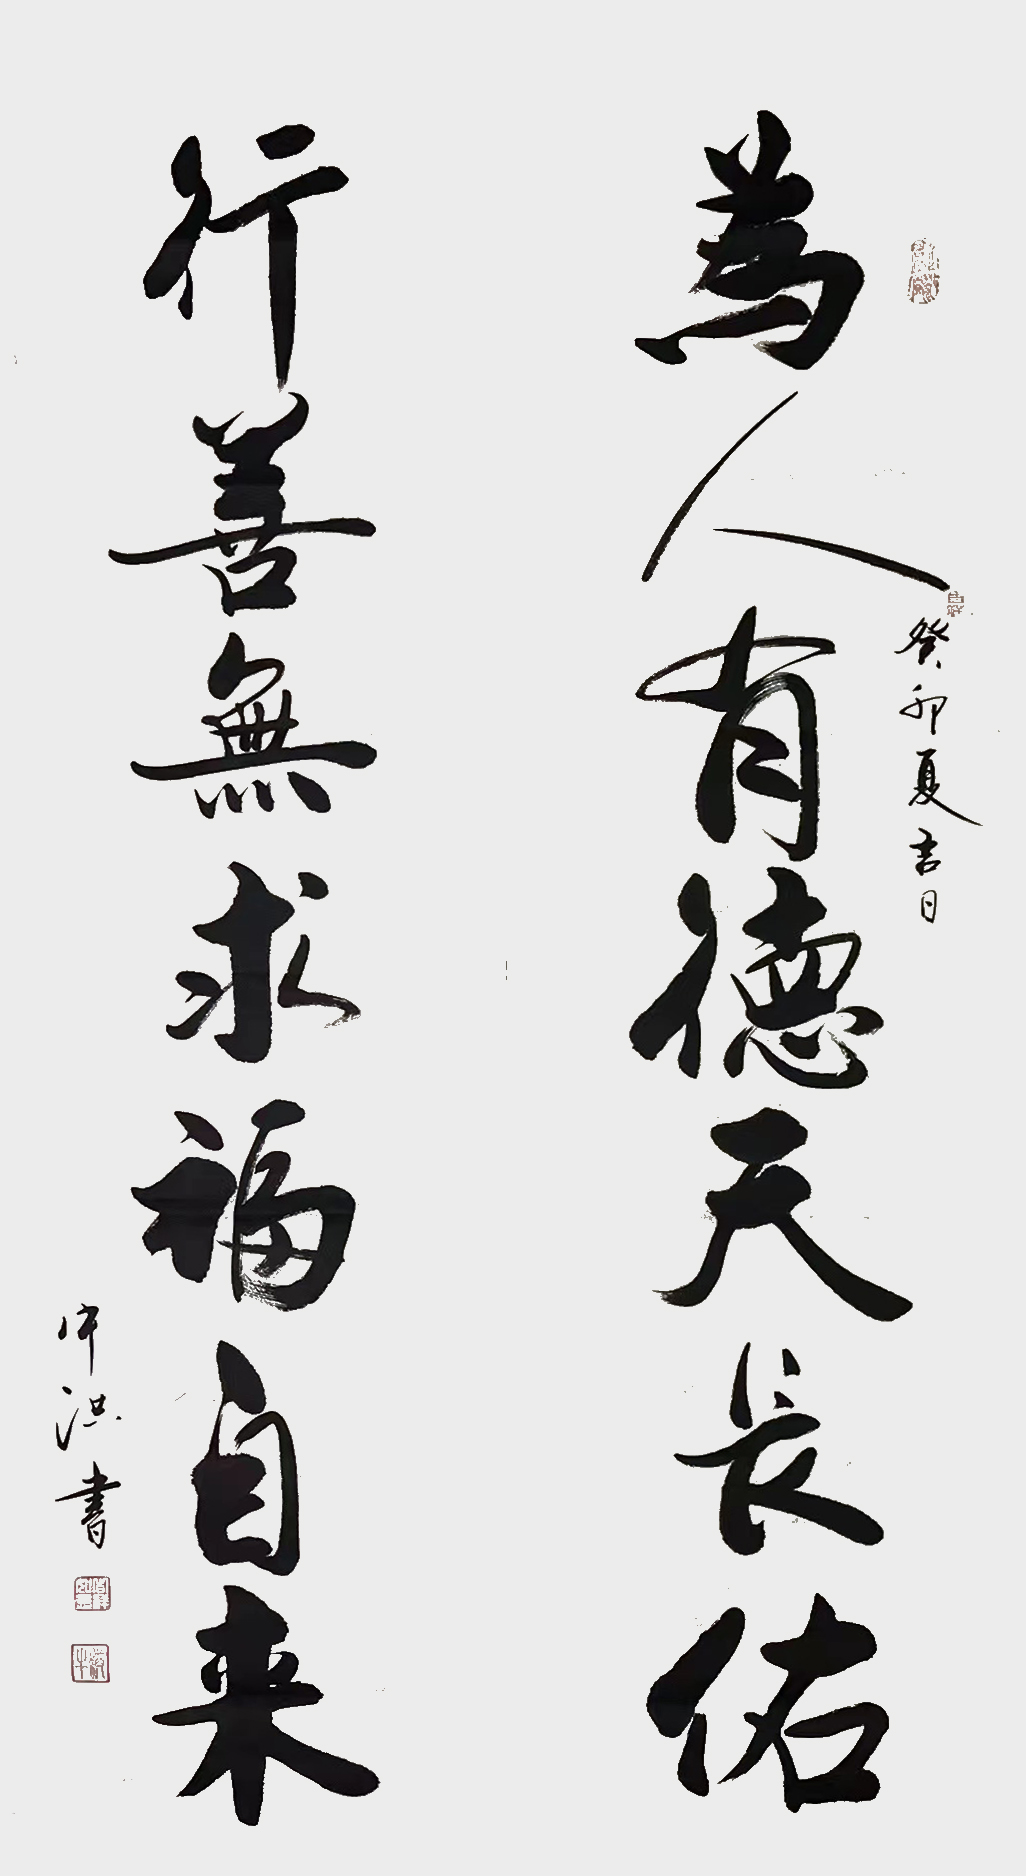 為人有德天長佑
癸卯夏吉日
行善無求福自来
洪書